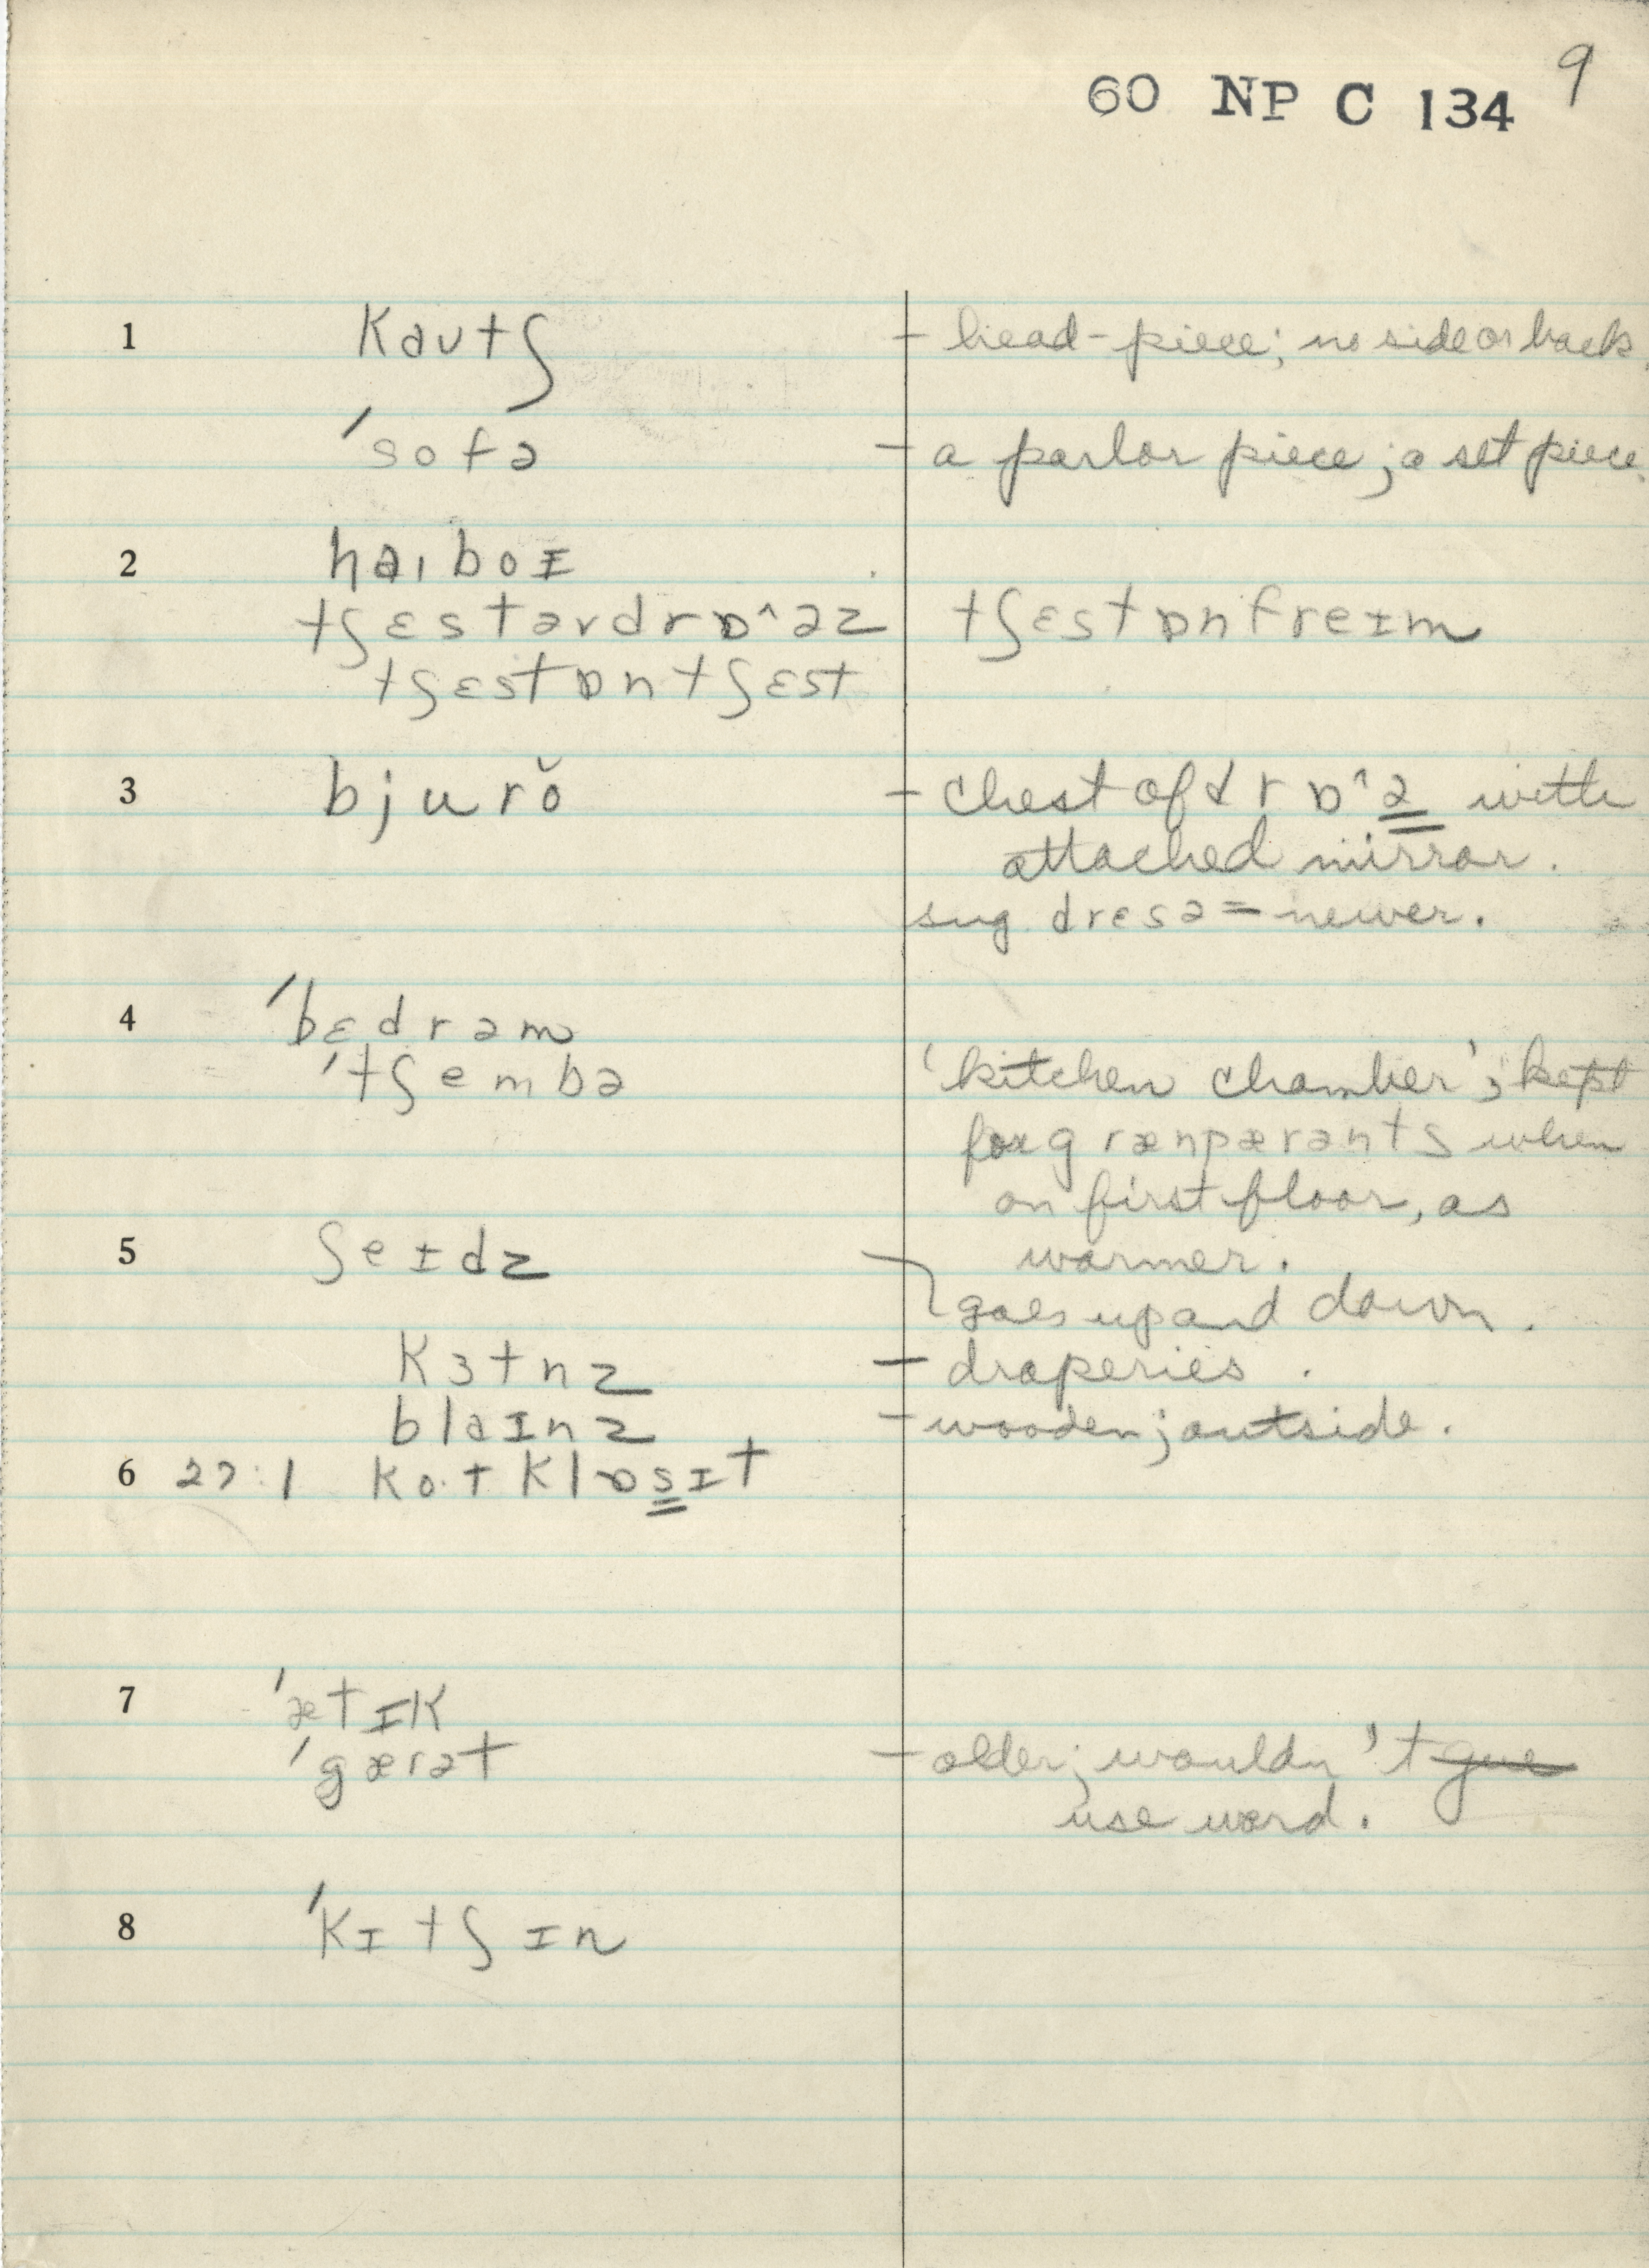 60 NP C 134 9
1 kaʊtʃ – head-piece; no side or back.
ˈsofə – a parlor piece; a set piece.
2 haɪboɪ
tʃɛstəvdrɒ^əz tʃɛstɒnfreɪm
tʃɛstɒntʃɛst
3 bjurŏ – chest of drɒ^ə with
attached mirror.
sug. drɛsə = newer.
4 ˈbɛdrəm
ˈtʃembə 'kitchen chamber'; kept
for grænpærənts when
on first floor, as
5 ʃeɪdz warmer.
goes up and down.
kɜtnz – draperies.
blaɪnz – wooden; outside.
6 27:1 ko·t klɒsɪt
7 ˈætɪk
ˈgærət – older; wouldn't give
use word.
8 ˈkɪtʃɪn